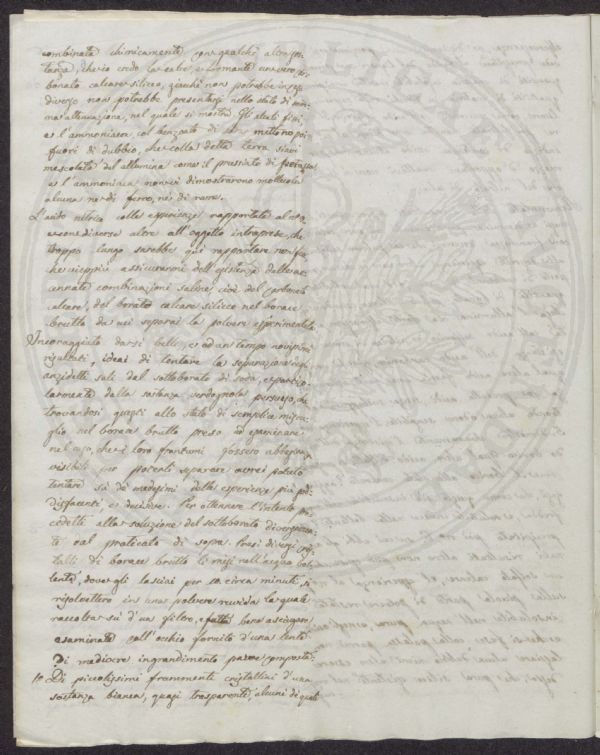 combinata chimicamente con qualche altra sos-
tanza, che io credo la calce, e formante un vero bo-
rato calcare siliceo, giacchè non potrebbe in caso
diverso non potrebbe presentarsi nello stato di som-
ma attenuazione, nel quale si mostra. Gli alcali fissi,
e l'ammoniaca, col benzoato di mettono poi
fuori di dubbio, che colla detta terra siavi
mescolata del allumina come il prussiato di potassa
e l'ammoniaca non vi dimostrarono molecola
alcuna nè di ferro, nè di rame.
L'acido nitrico colle esperienze rapportate al
e con diverse altre all'oggetto intraprese, che
troppo lungo sarebbe qui rapportare
che vieppiù assicurarmi dell'esistenza delle ac-
cennate combinazioni saline cioè del carbonato
calcare, del borato calcare siliceo nel borace
brutto da cui separai la polvere esperimentata.
Incoraggiato da sì belli, e ad un tempo nuovi
risultati, ideai di tentare la separazione degl'
anzidetti sali dal sottoborato di soda, e partico-
larmente dalla sostanza verdognola persuaso, che
trovandosi questi allo stato di semplice miscu-
glio nel borace brutto preso ad esaminare
nel caso, che i loro frantumi fossero abbastanza
visibili per poterli separare avrei potuto
tentare su de' medesimi delle esperienze più sod-
disfacenti, e decisive. Per ottenere l'intento pro-
cedetti alla soluzione del sottoborato diversamen-
te dal praticato di sopra. Presi diversi cris-
talli di borace brutto li misi nell'acqua bol-
lente, dove gli lasciai per 10 circa minuti, si
risolvettero in una polvere ruvida la quale
raccolta su d'un filtro, e fatta bene asciugare
esaminata coll'occhio fornito d'una lente
di mediocre ingrandimento parve composta:
1o. Di piccolissimi frammenti cristallini d'una
sostanza bianca, quasi trasparenti, alcuni di quali